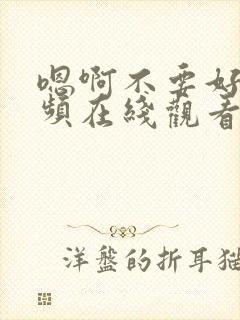 嗯啊不要好
頻在綫觀看
洋盤的折耳猫